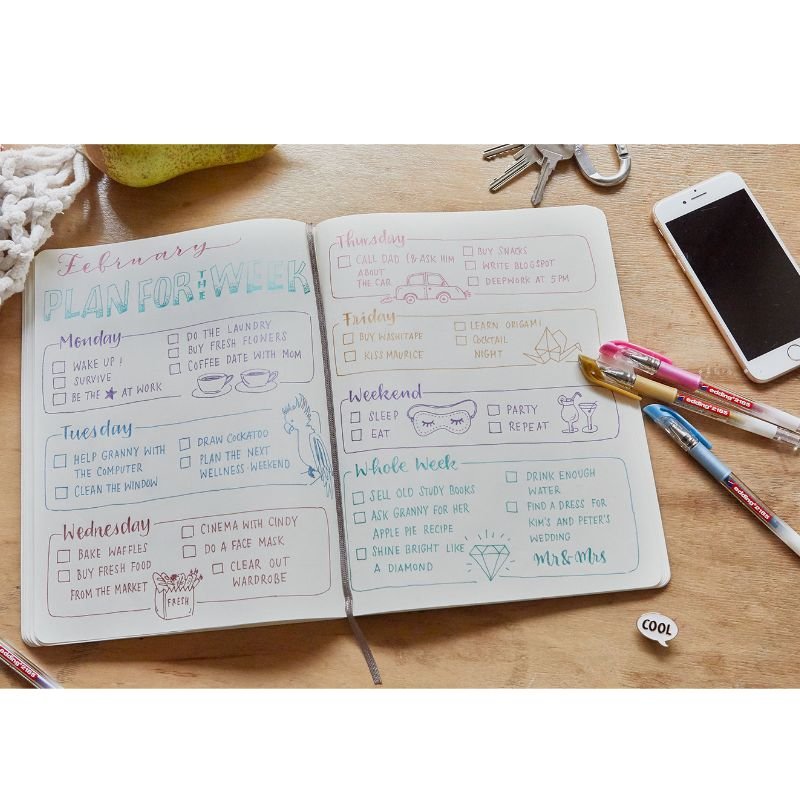 February
PLAN FOR THE WEEK
Monday
WAKE UP!
SURVIVE
BE THE ★ AT WORK
DO THE LAUNDRY
BUY FRESH FLOWERS
COFFEE DATE WITH MOM
Tuesday
HELP GRANNY WITH
THE COMPUTER
CLEAN THE WINDOW
DRAW COCKATOO
PLAN THE NEXT
WELLNESS-WEEKEND
Wednesday
BAKE WAFFLES
BUY FRESH FOOD
FROM THE MARKET
FRESH
CINEMA WITH CINDY
DO A FACE MASK
CLEAR OUT
WARDROBE
Thursday
CALL DAD (& ASK HIM
ABOUT
THE CAR
BUY SNACKS
WRITE BLOGSPOT
DEEPWORK AT 5PM
Friday
BUY WASHITAPE
KISS MAURICE
LEARN ORIGAMI
COCKTAIL
NIGHT
Weekend
SLEEP
EAT
PARTY
REPEAT
Whole Week
SELL OLD STUDY BOOKS
ASK GRANNY FOR HER
APPLE PIE RECIPE
SHINE BRIGHT LIKE
A DIAMOND
DRINK ENOUGH
WATER
FIND A DRESS FOR
KIM'S AND PETER'S
WEDDING
Mr & Mrs
edding 2185
edding 2185
edding 2185
edding 2185
COOL